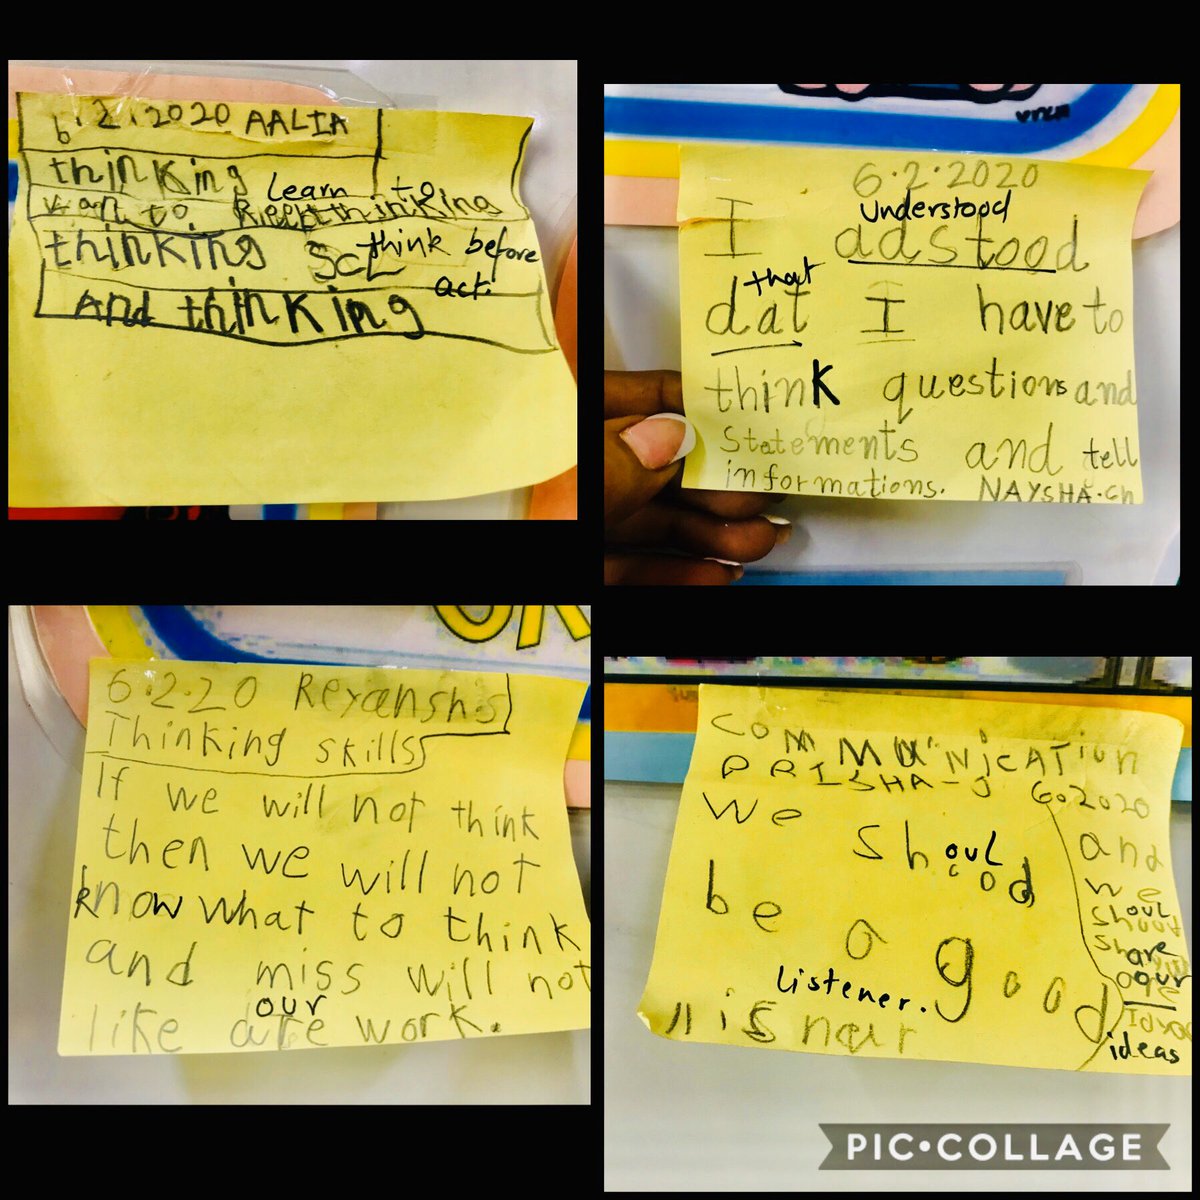 6.2.2020 AALIA
thinking
Learn to
wan to thinking
thinking ScL think before
act.
And thinking
6.2.2020
Understood
I adstood
that
dat I have to
think questions and
Statements and tell
informations. NAYSHA.Ch
6.2.20 Reyansh.s
Thinking skills
If we will not think
then we will not
know what to think
and miss will not
our
like are work.
COMMUNICATION
PRISHA-J 6.2020
We should
be a good
listener.
and
we
should
share
our
ideas
PIC•COLLAGE